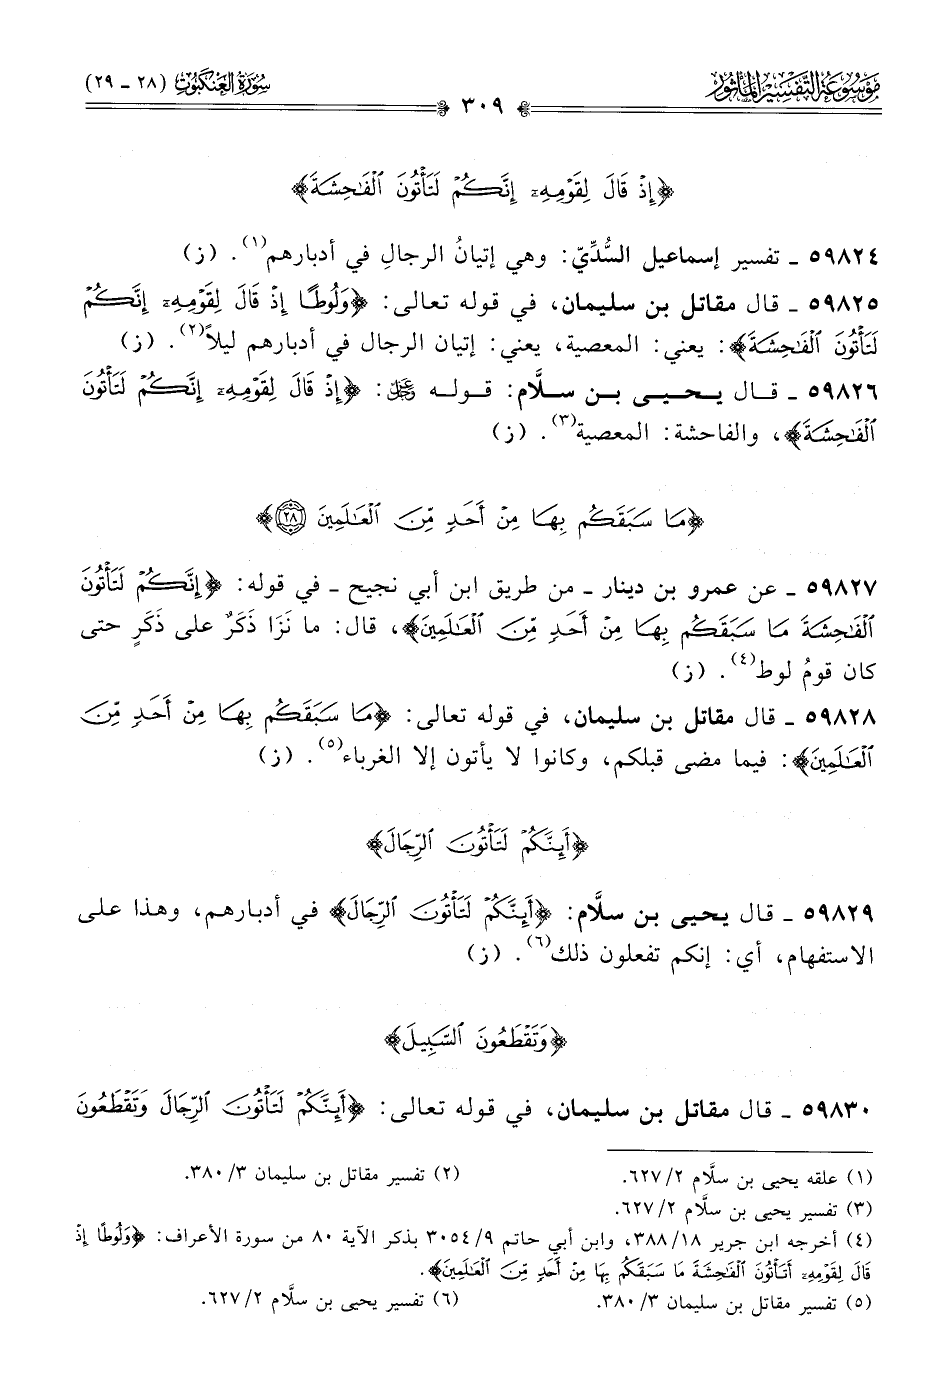 موسوعة التفسير المأثور
سورة العنكبوت (٢٨ - ٢٩)
٣٠٩
﴿إِذْ قَالَ لِقَوْمِهِۦٓ إِنَّكُمْ لَتَأْتُونَ ٱلْفَٰحِشَةَ﴾
٥٩٨٢٤ - تفسير إسماعيل السُّدِّيّ: وهي إتيانُ الرجالِ في أدبارهم(١). (ز)
٥٩٨٢٥ - قال مقاتل بن سليمان، في قوله تعالى: ﴿وَلُوطًا إِذْ قَالَ لِقَوْمِهِۦٓ إِنَّكُمْ
لَتَأْتُونَ ٱلْفَٰحِشَةَ﴾: يعني: المعصية، يعني: إتيان الرجال في أدبارهم ليلاً(٢). (ز)
٥٩٨٢٦ - قال يحيى بن سلَّام: قوله ﷻ: ﴿إِذْ قَالَ لِقَوْمِهِۦٓ إِنَّكُمْ لَتَأْتُونَ
ٱلْفَٰحِشَةَ﴾، والفاحشة: المعصية(٣). (ز)
﴿مَا سَبَقَكُم بِهَا مِنْ أَحَدٍ مِّنَ ٱلْعَٰلَمِينَ ۝٢٨﴾
٥٩٨٢٧ - عن عمرو بن دينار - من طريق ابن أبي نجيح - في قوله: ﴿إِنَّكُمْ لَتَأْتُونَ
ٱلْفَٰحِشَةَ مَا سَبَقَكُم بِهَا مِنْ أَحَدٍ مِّنَ ٱلْعَٰلَمِينَ﴾، قال: ما نَزَا ذَكَرٌ على ذَكَرٍ حتى
كان قومُ لوط(٤). (ز)
٥٩٨٢٨ - قال مقاتل بن سليمان، في قوله تعالى: ﴿مَا سَبَقَكُم بِهَا مِنْ أَحَدٍ مِّنَ
ٱلْعَٰلَمِينَ﴾: فيما مضى قبلكم، وكانوا لا يأتون إلا الغرباء(٥). (ز)
﴿أَئِنَّكُمْ لَتَأْتُونَ ٱلرِّجَالَ﴾
٥٩٨٢٩ - قال يحيى بن سلَّام: ﴿أَئِنَّكُمْ لَتَأْتُونَ ٱلرِّجَالَ﴾ في أدبارهم، وهذا على
الاستفهام، أي: إنكم تفعلون ذلك(٦). (ز)
﴿وَتَقْطَعُونَ ٱلسَّبِيلَ﴾
٥٩٨٣٠ - قال مقاتل بن سليمان، في قوله تعالى: ﴿أَئِنَّكُمْ لَتَأْتُونَ ٱلرِّجَالَ وَتَقْطَعُونَ
(١) علقه يحيى بن سلَّام ٢/ ٦٢٧.
(٢) تفسير مقاتل بن سليمان ٣/ ٣٨٠.
(٣) تفسير يحيى بن سلَّام ٢/ ٦٢٧.
(٤) أخرجه ابن جرير ١٨/ ٣٨٨، وابن أبي حاتم ٩/ ٣٠٥٤ بذكر الآية ٨٠ من سورة الأعراف: ﴿وَلُوطًا إِذْ
قَالَ لِقَوْمِهِۦٓ أَتَأْتُونَ ٱلْفَٰحِشَةَ مَا سَبَقَكُم بِهَا مِنْ أَحَدٍ مِّنَ ٱلْعَٰلَمِينَ﴾.
(٥) تفسير مقاتل بن سليمان ٣/ ٣٨٠.
(٦) تفسير يحيى بن سلَّام ٢/ ٦٢٧.